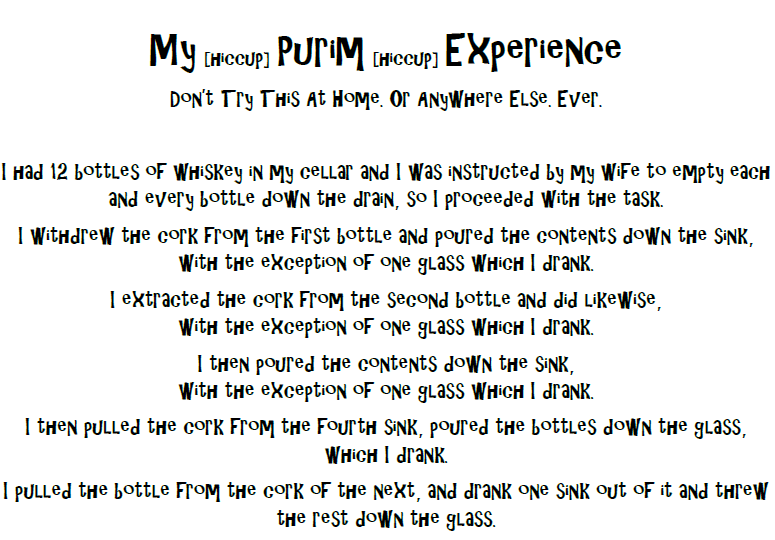 My [hiccup] Purim [hiccup] Experience
Don't Try This At Home. Or Anywhere Else. Ever.
I had 12 bottles of whiskey in my cellar and I was instructed by my wife to empty each
and every bottle down the drain, so I proceeded with the task.
I withdrew the cork from the first bottle and poured the contents down the sink,
with the exception of one glass which I drank.
I extracted the cork from the second bottle and did likewise,
with the exception of one glass which I drank.
I then poured the contents down the sink,
with the exception of one glass which I drank.
I then pulled the cork from the fourth sink, poured the bottles down the glass,
which I drank.
I pulled the bottle from the cork of the next, and drank one sink out of it and threw
the rest down the glass.